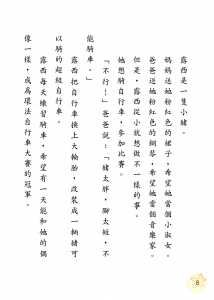 露西是一隻小豬。
媽媽送她粉紅色的裙子，希望她當個小淑女。
爸爸送她粉紅色的鋼琴，希望她當個音樂家。
但是，露西從小就想做不一樣的事。
她想騎自行車，參加比賽。
「不行！」爸爸說：「豬太胖，腳太短，不
能騎車。」
露西把自行車換上大輪胎，改裝成一輛豬可
以騎的超級自行車。
露西每天練習騎車，希望有一天能和她的偶
像一樣，成為環法自行車大賽的冠軍。
8